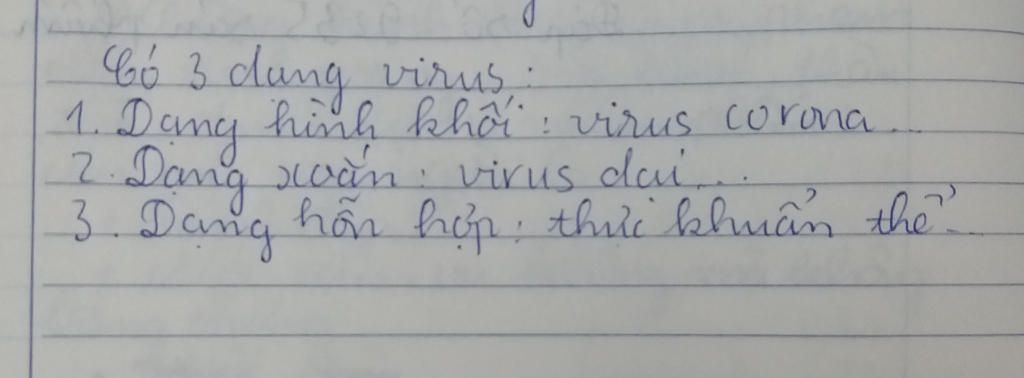 Có 3 dạng virus:
1. Dạng hình khối: virus corona...
2. Dạng xoắn: virus dại...
3. Dạng hỗn hợp: thực khuẩn thể...